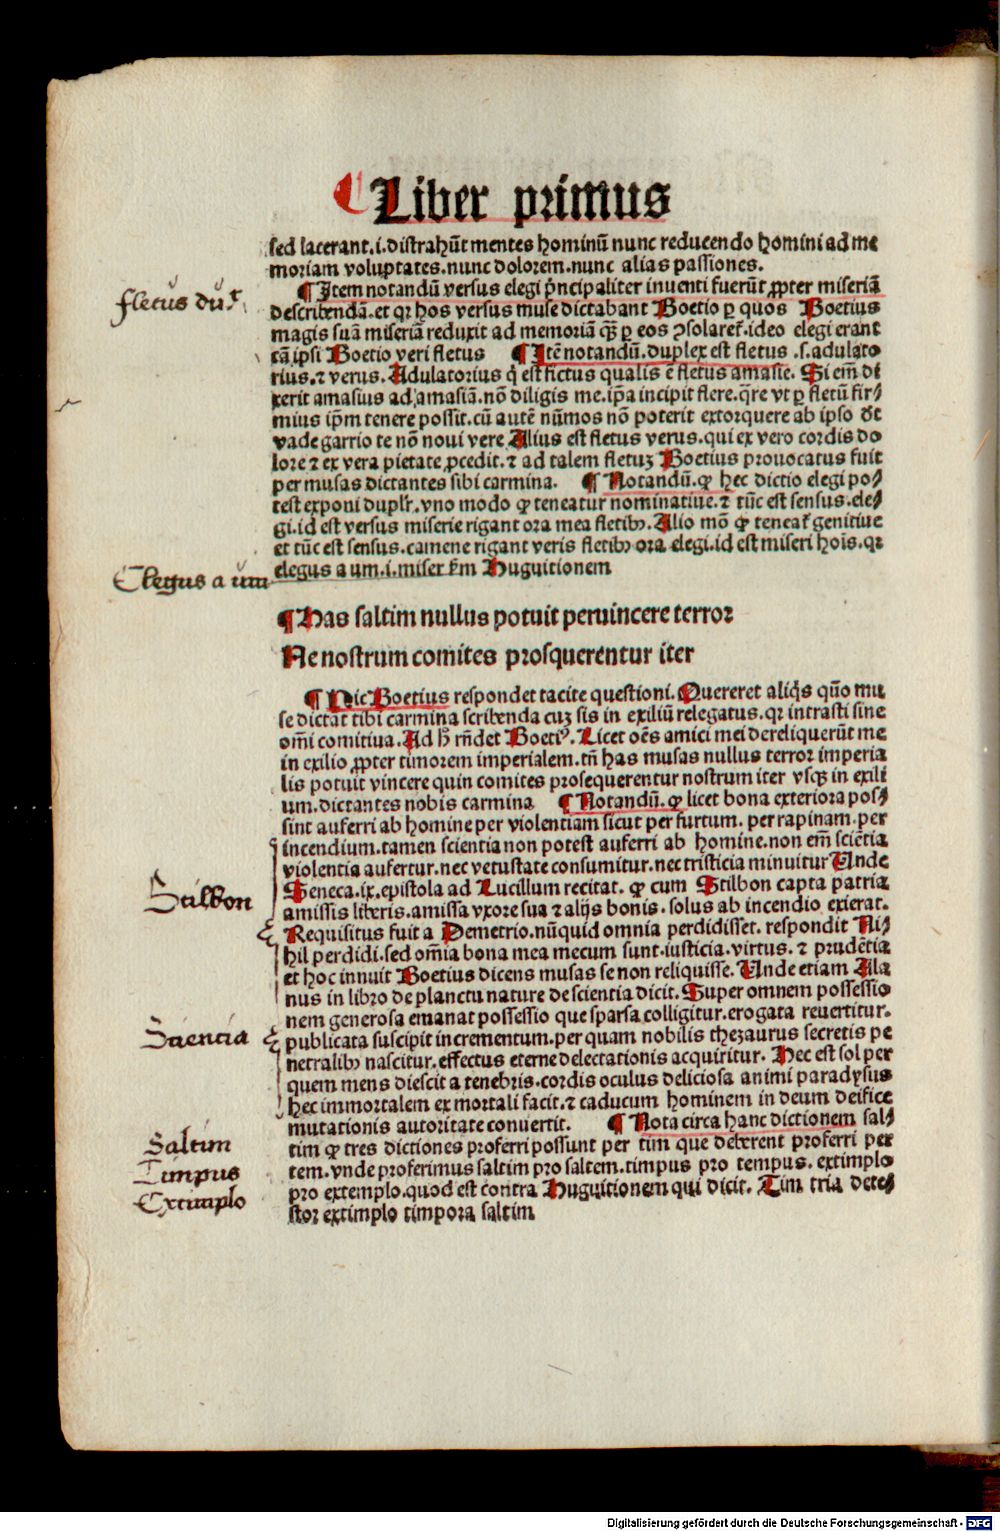 ¶ Liber primus
sed lacerant.i.distrahūt mentes hominū nunc reducendo homini ad me
moriam voluptates.nunc dolorem.nunc alias passiones.
¶ Item notandū versus elegi p̄ncipaliter inuenti fuerūt ꝓpter miseriā
describendā.et qꝛ hos versus muse dictabant Boetio ꝑ quos Boetius
magis suā miseriā reduxit ad memoriā qꝫ ꝑ eos ꝯsolaret̄.ideo elegi erant
tāꝗ̄ ipsi Boetio veri fletus ¶ Itē notandū.duplex est fletus .s.adulato
rius.⁊ verus. Adulatorius q̄ est fictus qualis ē fletus amasie. Si em̄ di
xerit amasius ad amasiā.nō diligis me.ip̄a incipit flere.q̄re vt ꝑ fletū fir⸗
mius ip̄m tenere possit.cū autē nūmos nō poterit extorquere ab ipso dt̄
vade garrio te nō noui vere Alius est fletus verus.qui ex vero cordis do
lore ⁊ ex vera pietate ꝓcedit.⁊ ad talem fletuꝫ Boetius prouocatus fuit
per musas dictantes sibi carmina. ¶ Notandū.ꝙ hec dictio elegi po⸗
test exponi duplr̄.vno modo ꝙ teneatur nominatiue.⁊ tūc est sensus.ele⸗
gi.id est versus miserie rigant ora mea fletibꝰ.Alio mō ꝙ teneat̄ genitiue
et tūc est sensus.camene rigant veris fletibꝰ ora elegi.id est miseri hoīs.qꝛ
elegus a um.i.miser ẜm Huguitionem
¶ Has saltim nullus potuit peruincere terror
Ne nostrum comites prosquerentur iter
¶ Hic Boetius respondet tacite questioni. Quereret aliq̄s quō mu
se dictāt tibi carmina scribenda cuꝫ sis in exiliū relegatus.qꝛ intrasti sine
om̄i comitiua.Ad h̄ rn̄det Boetiꝰ. Licet oēs amici mei dereliquerūt me
in exilio ꝓpter timorem imperialem.tn̄ has musas nullus terror imperia
lis potuit vincere quin comites prosequerentur nostrum iter vsqꝫ in exili
um.dictantes nobis carmina ¶ Notandū.ꝙ licet bona exteriora pos⸗
sint auferri ab homine per violentiam sicut per furtum. per rapinam.per
incendium.tamen scientia non potest auferri ab homine.non em̄ sciētia
violentia aufertur.nec vetustate consumitur.nec tristicia minuitur Vnde
Seneca.ix.epistola ad Lucillum recitat. ꝙ cum Stilbon capta patria
amissis liberis.amissa vxore sua ⁊ alijs bonis. solus ab incendio exierat.
Requisitus fuit a Demetrio.nūquid omnia perdidisset. respondit Ni⸗
hil perdidi.sed om̄ia bona mea mecum sunt.iusticia.virtus. ⁊ prudētia
et hoc innuit Boetius dicens musas se non reliquisse. Vnde etiam Ala
nus in libro de planctu nature de scientia dicit. Super omnem possessio
nem generosa emanat possessio que sparsa colligitur.erogata reuertitur.
publicata suscipit incrementum.per quam nobilis thezaurus secretis pe
netralibꝰ nascitur.effectus eterne delectationis acquiritur. Hec est sol per
quem mens diescit a tenebris.cordis oculus deliciosa animi paradysus
hec immortalem ex mortali facit.⁊ caducum hominem in deum deifice
mutationis autoritate conuertit. ¶ Nota circa hanc dictionem sal⸗
tim ꝙ tres dictiones proferri possunt per tim que deberent proferri per
tem.vnde proferimus saltim pro saltem.timpus pro tempus. extimplo
pro extemplo.quod est contra Huguitionem qui dicit. Tim tria dete⸗
stor extimplo timpora saltim
fletus du
Elegus a um
Stilbon
Sciencia
Saltim
Timpus
Extimplo
Digitalisierung gefördert durch die Deutsche Forschungsgemeinschaft - DFG